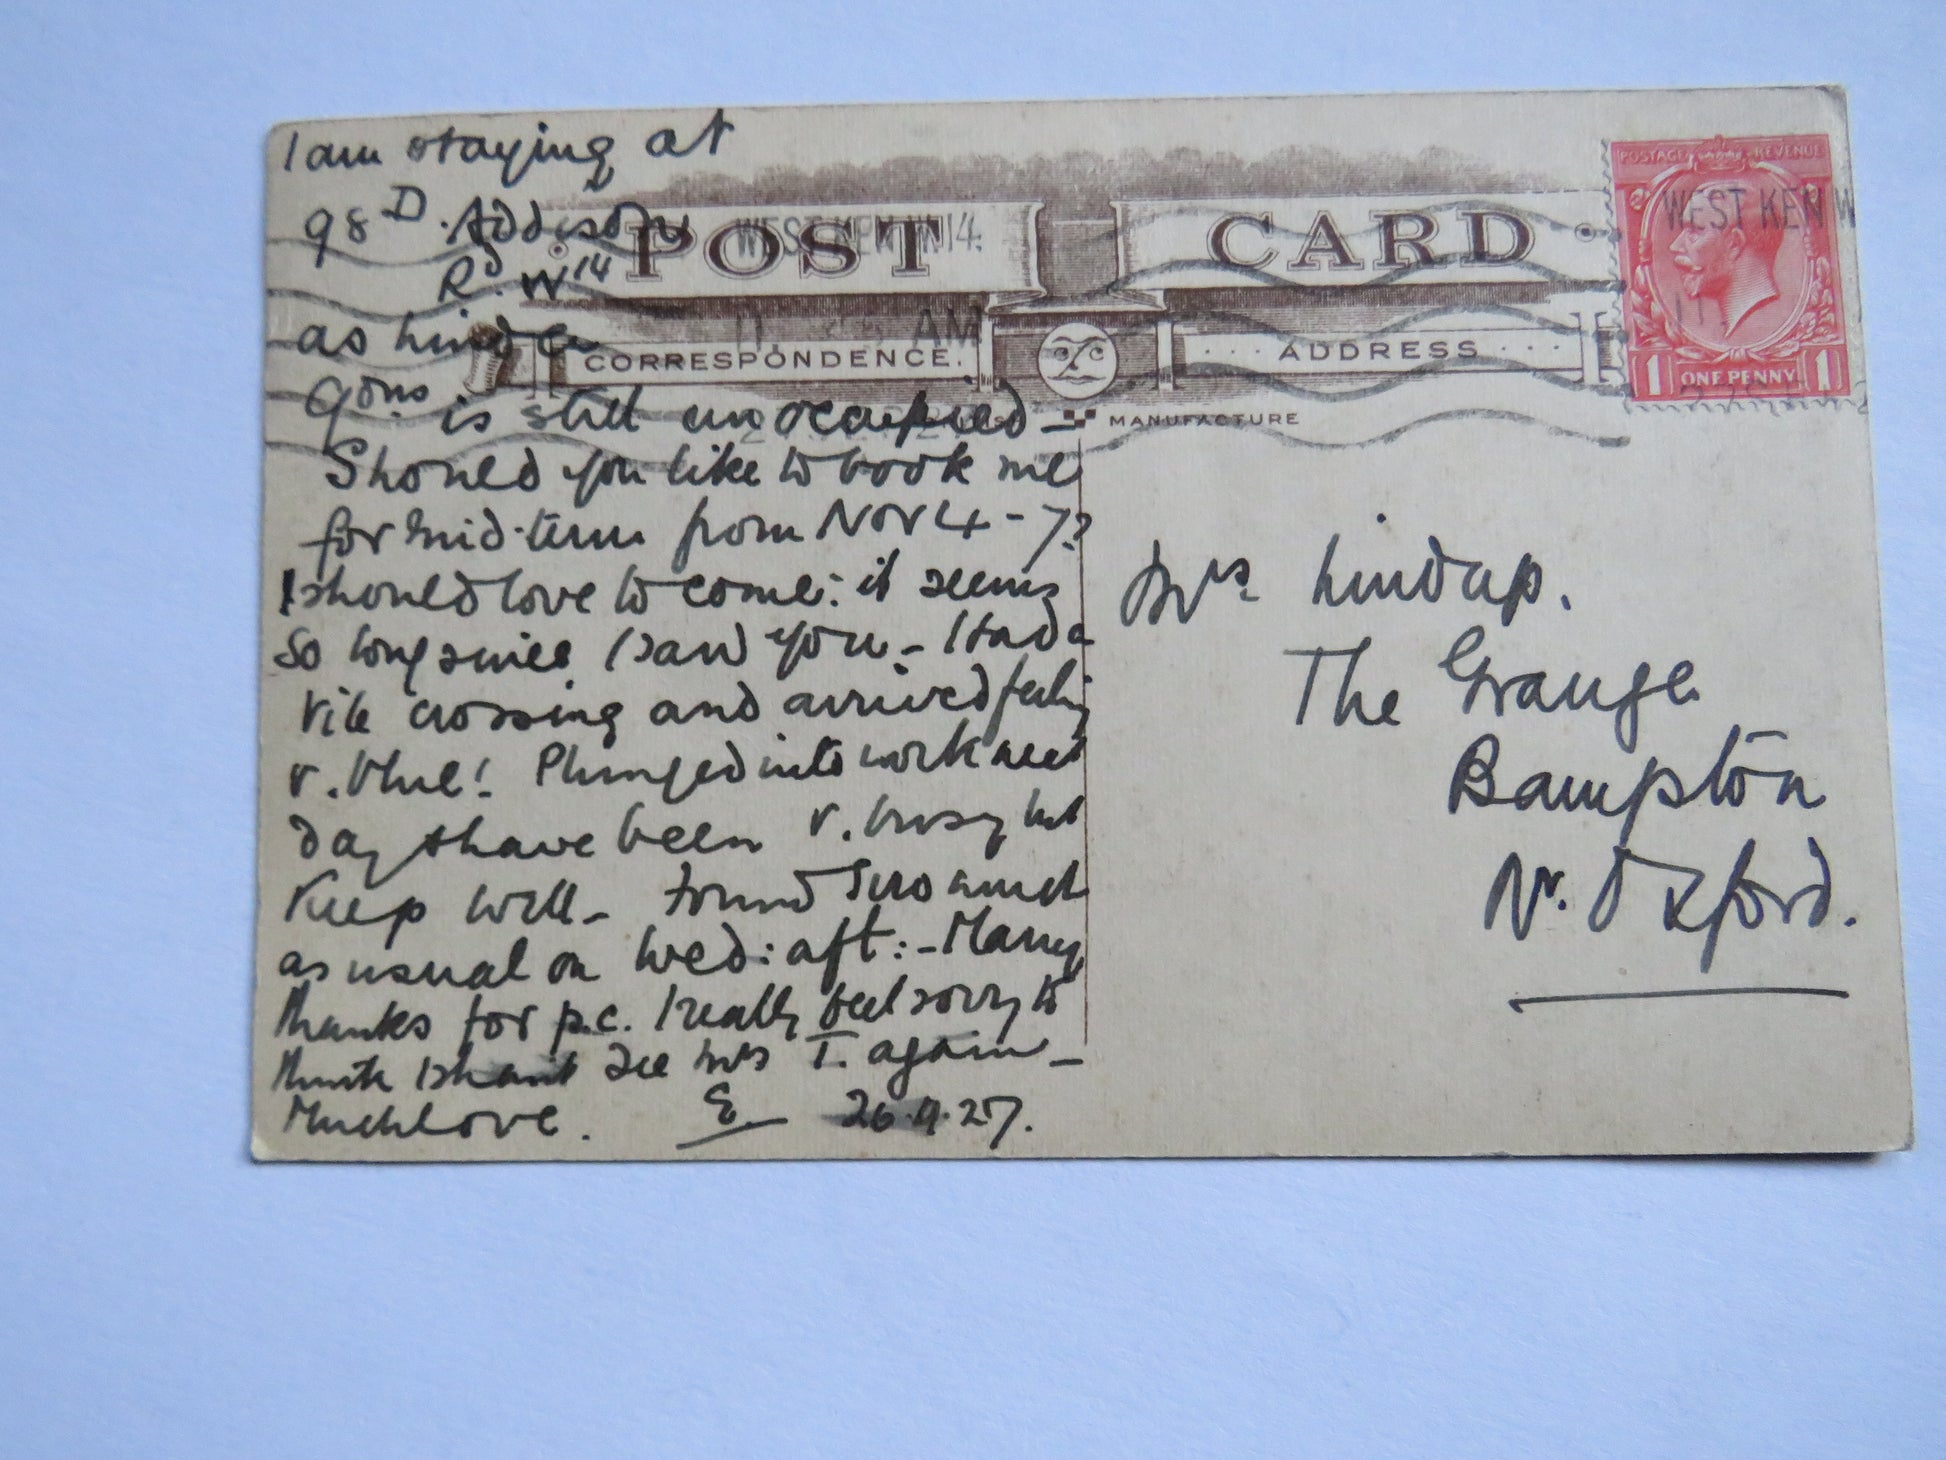 I am staying at
98D. Addison
Rd. W14
as Linden
Gdns is still unoccupied -
Should you like to book me
for mid-term from Nov 4 - 7?
I should love to come: it seems
so long since I saw you - I had a
vile crossing and arrived feeling
v. blue! Plunged into work next
day & have been v. busy but
keep well - found two much
as usual on Wed: aft: - Many
thanks for p.c. I really feel sorry to
think I shan't see Mrs T. again -
Much love. E. 26.9.27.
POST CARD
CORRESPONDENCE.
ADDRESS
MANUFACTURE
WEST KEN W14.
AM
POSTAGE REVENUE
WEST KEN W
1 ONE PENNY 1
Mrs Lindup.
The Grange
Bampton
Nr. Oxford.